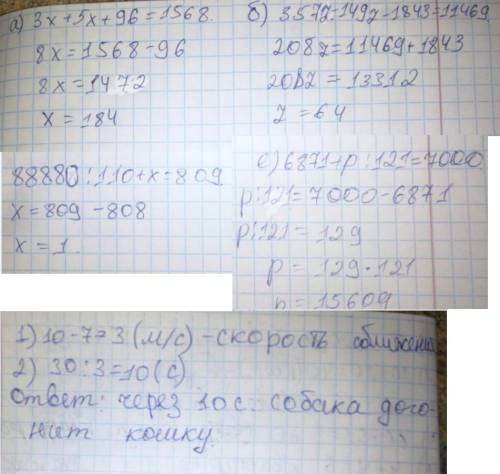 а) 3x+5x+96=1568.
8x=1568-96
8x=1472
x=184
б) 357z-149z-1843=11469
208z=11469+1843
208z=13312
z=64
88880:110+x=809
x=809-808
x=1.
е) 6871+p:121=7000
p:121=7000-6871
p:121=129
p=129·121
p=15609
1) 10-7=3(м/с)-скорость сближения
2) 30:3=10(с)
Ответ: через 10с. собака дого-
нит кошку.